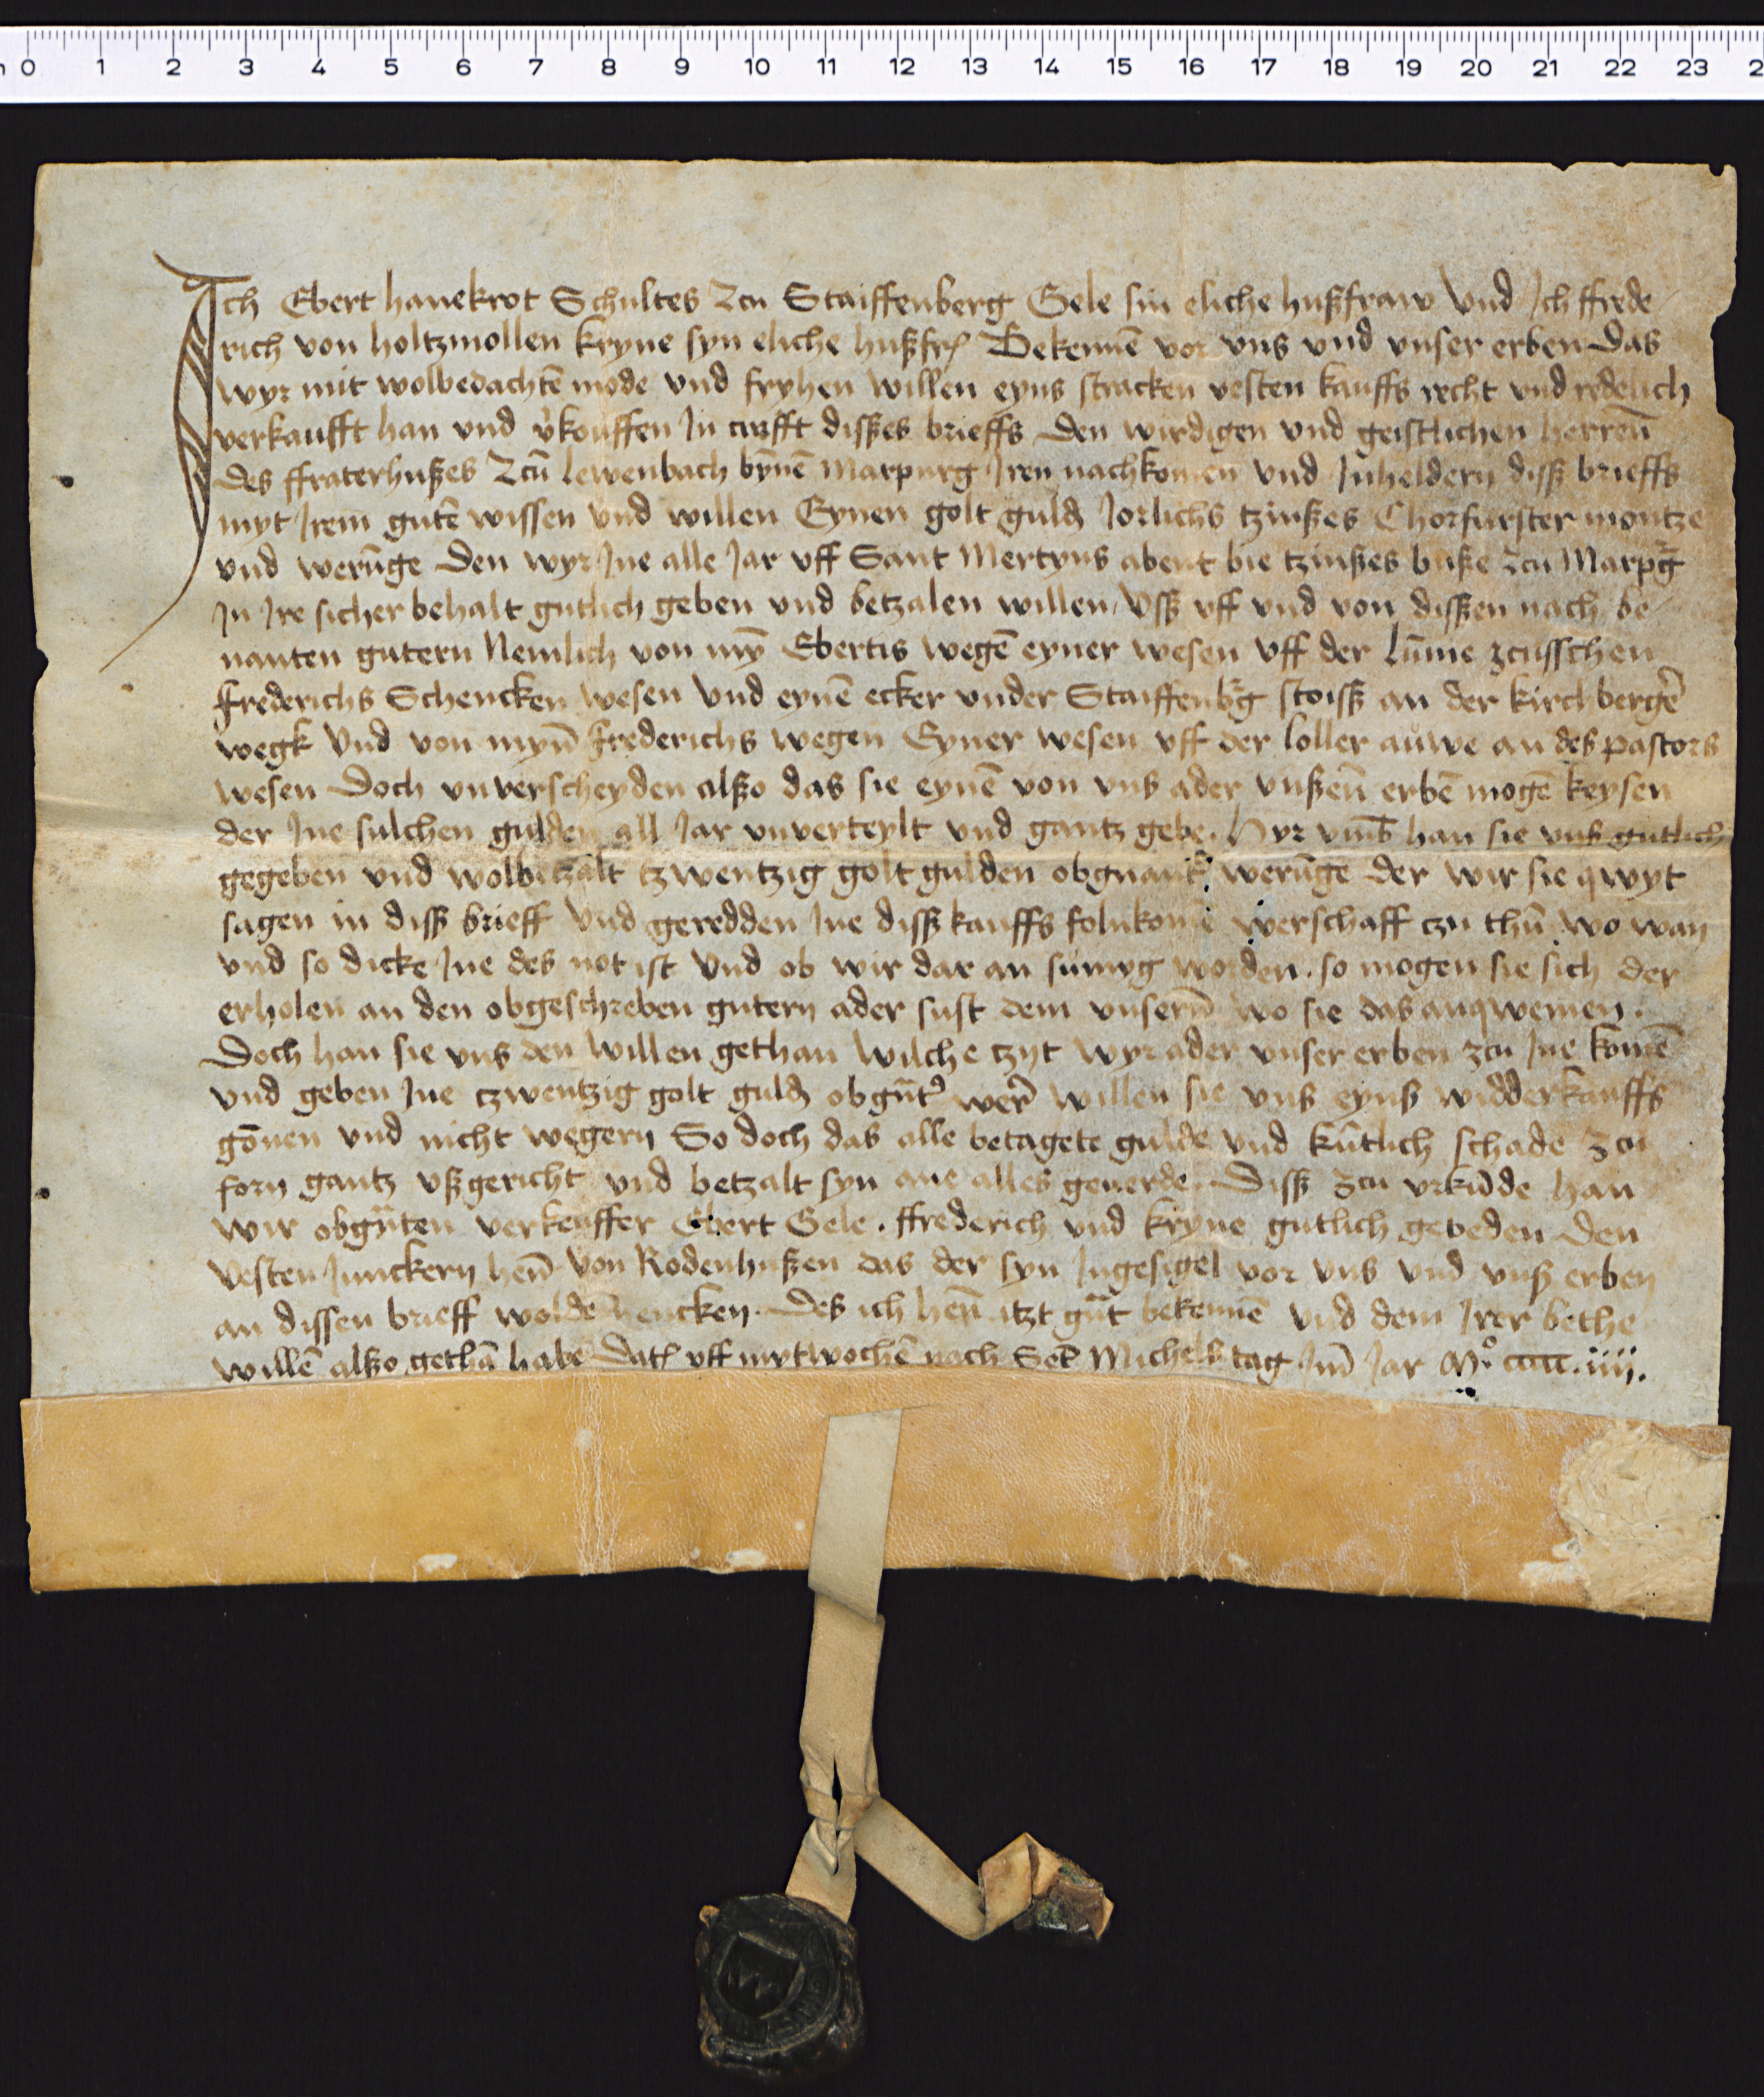 0 1 2 3 4 5 6 7 8 9 10 11 12 13 14 15 16 17 18 19 20 21 22 23
Ich Ebert hanekrot Schultes Zcu Staiffenberg Gele sin eliche hußfraw Und Ich ffrede
rich von holtzmollen kryne syn eliche hußfr Bekennē vor vns und vnser erben Das
wyr mit wolbedachtē mode vnd fryhen willen eyns stracken vesten kauffs recht vnd redelich
verkaufft han vnd v̉kouffen In crafft dißes brieffs Den wirdigen vnd geistlichen herrenn̄
des ffraterhußes Zcū lewenbach bynē Marpurg Iren nachkomen vnd Inheldern diß brieffs
myt Irem gutē wissen vnd willen Eynen golt guld Jorlichs tzinßes Chorfurster montze
vnd werūge Den wyr Ine alle Jar vff Sant Mertyns abent bie tzinßes buße zcu Marpg
In Ire sicher behalt gutlich geben vnd betzalen willen, Vß vff vnd von dißen nach be
nanten gutern Nemlich von myn̄ Ebertis wegē eyner wesen vff der lūme zcusschen
frederichs Schencken wesen vnd eynē ecker vnder Staiffenbg stoiß an der kirchbergē
wegk Vnd von mynn̄ frederichs wegen Eyner wesen vff der loller auwe an des pastors
wesen Doch vnverscheyden alßo das sie eynē von vns ader vnßen̄ erbē mogē keysen
der Ine sulchen gulden all Jar vnverteylt vnd gantz gebe. Hyr vmb han sie vns gutlich
gegeben vnd wolbetzalt tzwentzig golt gulden obgnant werūge der wir sie qwyt
sagen in diß brieff Vnd geredden Ine diß kauffs folnkome werschaff czu thū wo wan
vnd so dicke Ine des not ist Vnd ob wir dar an sumyg worden. so mogen sie sich der
erholen an den obgeschreben gutern ader sust dem vnsern̄ wo sie das anqwemen.
Doch han sie vns den willen gethan Wilche tzyt wyr ader vnser erben zcu Ine komē
vnd geben Ine tzwentzig golt guld obgnt wer̄ willen sie vns eyns widderkauffs
gōnen vnd nicht wegern So doch das alle betagete gulde vnd kūtlich schade zcu
forn gantz vßgericht vnd betzalt syn ane alles geuerde. Diß zcu vrkūde han
wir obgnten verkeuffer Ebert Gele. ffrederich vnd kryne gutlich gebeden den
vesten Junckern hen̄ von Rodenhußen das der syn Ingesigel vor vns vnd vnß erben
an dissen brieff woldē hencken. Des ich hen̄ itzt gnt bekennē vnd dem Irer bethe
willē alßo gethā habe Dat vff mytwochē nach Sct Michels tag Im̄ Jar Mº ccccc. iiij.